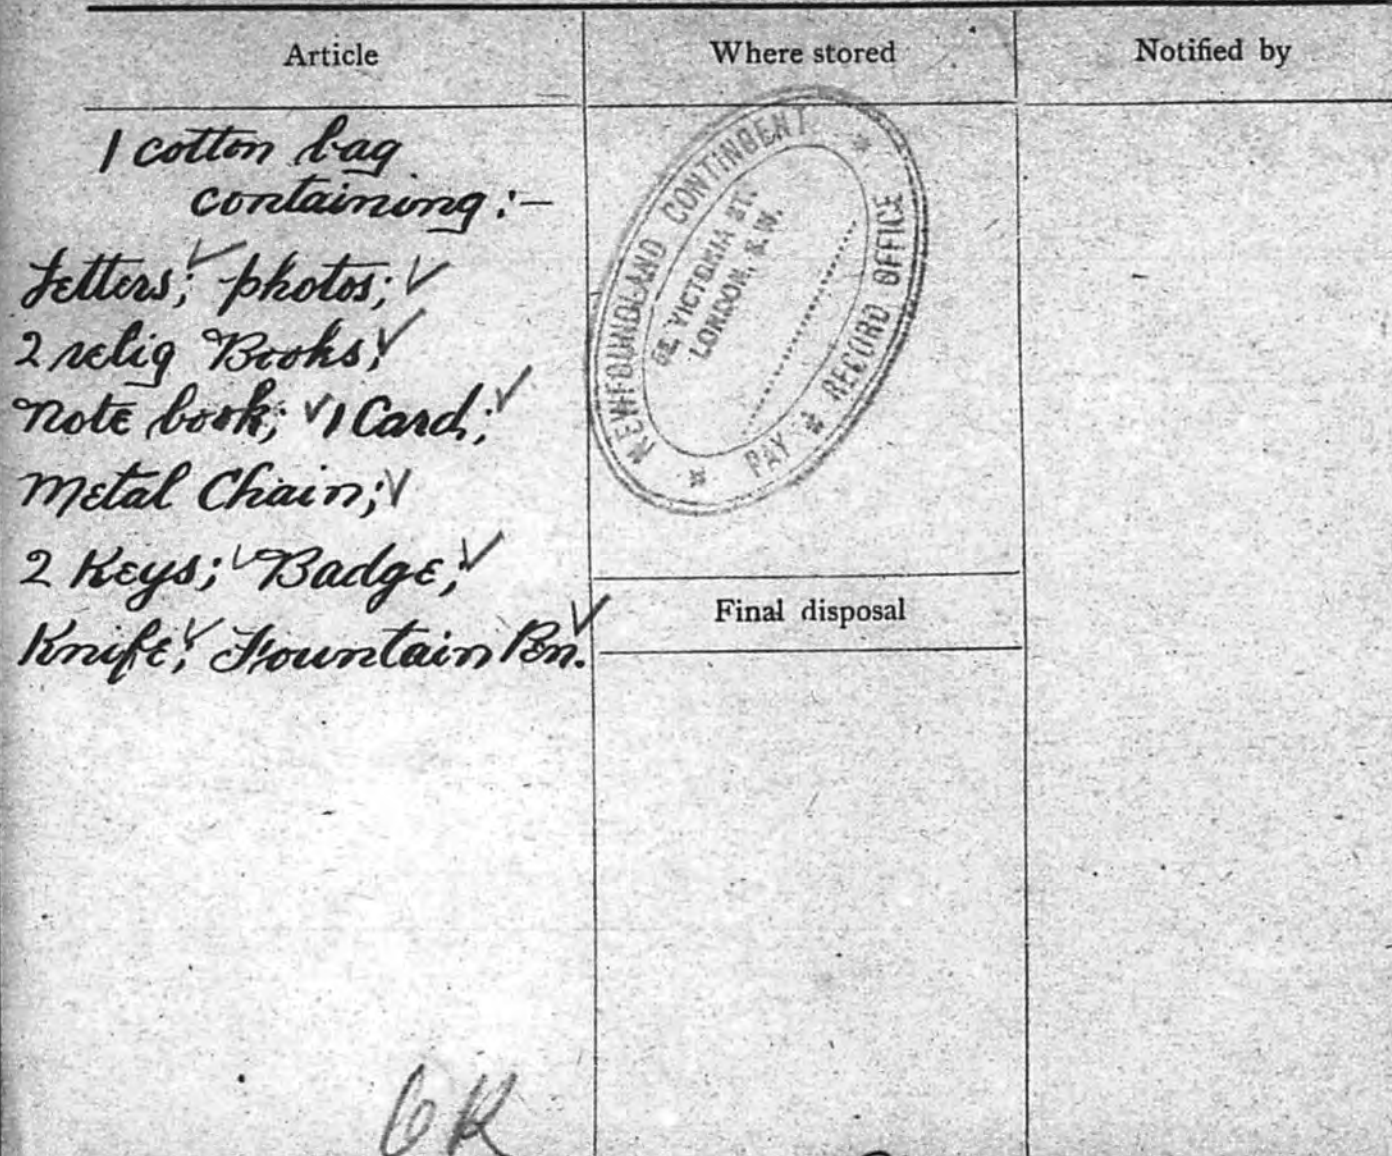 Article
Where stored
Notified by
1 cotton bag
containing :-
Letters; ✓ photos; ✓
2 relig Books; ✓
Note book; ✓ 1 Card; ✓
Metal Chain; ✓
2 Keys; ✓ Badge; ✓
Knife; ✓ Fountain Pen. ✓
NEWFOUNDLAND CONTINGENT
VICTORIA ST.
LONDON, S.W.
PAY & RECORD OFFICE
Final disposal
OK